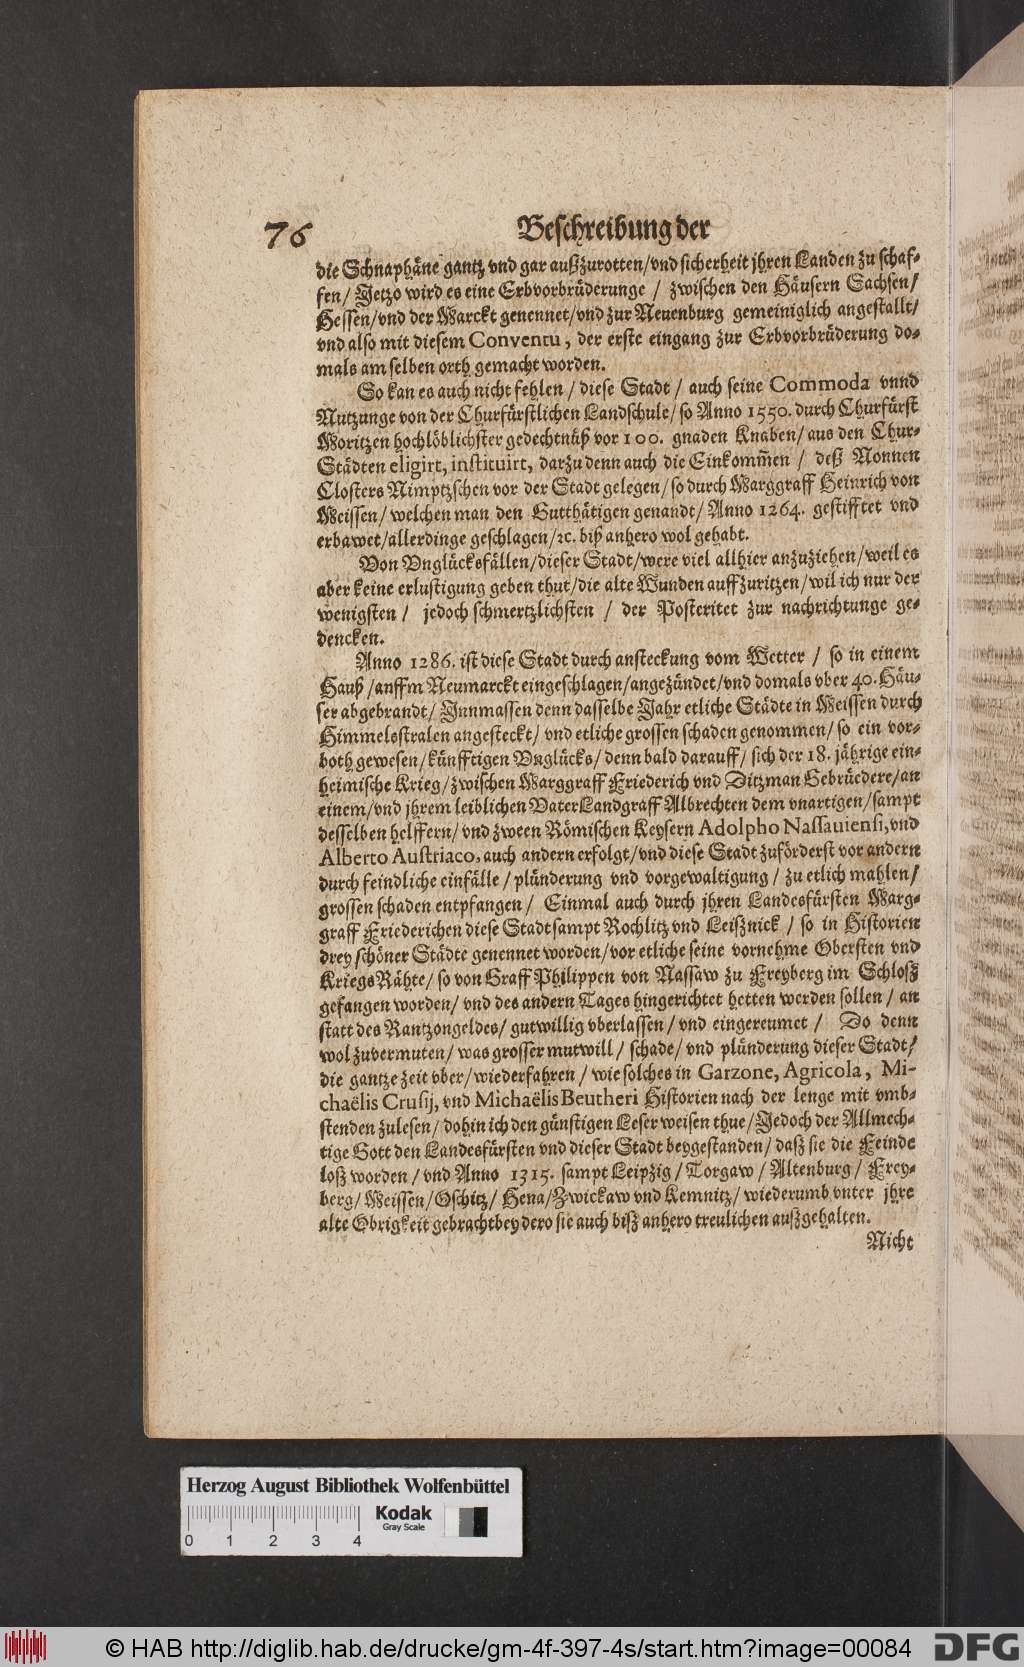 76 Beschreibung der
die Schnaphäne gantz vnd gar außzurotten/vnd sicherheit jhren Landen zu schaf-
fen/ Jetzo wird es eine Erbvorbrüderunge / zwischen den Häusern Sachsen/
Hessen/vnd der Marckt genennet/vnd zur Neuenburg gemeiniglich angestallt/
vnd also mit diesem Conventu, der erste eingang zur Erbvorbrüderung do-
mals am selben orth gemacht worden.
So kan es auch nicht fehlen / diese Stadt / auch seine Commoda vnnd
Nutzunge von der Churfürstlichen Landschule/so Anno 1550. durch Churfürst
Moritzen hochlöblichster gedechtnüß vor 100. gnaden Knaben/ aus den Chur-
Städten eligirt, instituirt, darzu denn auch die Einkom̃en / deß Nonnen
Closters Nimptzschen vor der Stadt gelegen/so durch Marggraff Heinrich von
Meissen/welchen man den Gutthätigen genandt/Anno 1264. gestifftet vnd
erbawet/allerdinge geschlagen/ꝛc. biß anhero wol gehabt.
Von Vnglücksfällen/dieser Stadt/were viel allhier anzuziehen/weil es
aber keine erlustigung geben thut/die alte Wunden auffzuritzen/wil ich nur der
wenigsten / jedoch schmertzlichsten / der Posteritet zur nachrichtunge ge-
dencken.
Anno 1286. ist diese Stadt durch ansteckung vom Wetter / so in einem
Hauß /auffm Neumarckt eingeschlagen/angezündet/vnd domals vber 40. Häu-
ser abgebrandt/ Innmassen denn dasselbe Jahr etliche Städte in Meissen durch
Himmelsstralen angesteckt/ vnd etliche grossen schaden genommen/ so ein vor-
both gewesen/künfftigen Vnglücks/denn bald darauff/sich der 18. jährige ein-
heimische Krieg/zwischen Marggraff Friederich vnd Ditzman Gebrüedere/an
einem/vnd jhrem leiblichen Vater Landgraff Albrechten dem vnartigen/sampt
desselben helffern/vnd zween Römischen Keysern Adolpho Nassauiensi, vnd
Alberto Austriaco, auch andern erfolgt/vnd diese Stadt zuförderst vor andern
durch feindliche einfälle / plünderung vnd vorgewaltigung / zu etlich mahlen/
grossen schaden entpfangen / Einmal auch durch jhren Landesfürsten Marg-
graff Friederichen diese Stadt sampt Rochlitz vnd Leißnick / so in Historien
drey schöner Städte genennet worden/vor etliche seine vornehme Obersten vnd
KriegsRähte/so von Graff Philippen von Nassaw zu Freyberg im Schloß
gefangen worden/ vnd des andern Tages hingerichtet hetten werden sollen / an
statt des Rantzongeldes/ gutwillig vberlassen/ vnd eingereumet / Do denn
wol zuvermuten/ was grosser mutwill / schade/ vnd plünderung dieser Stadt/
die gantze zeit vber/wiederfahren/ wie solches in Garzone, Agricola, Mi-
chaëlis Crusij, vnd Michaëlis Beutheri Historien nach der lenge mit vmb-
stenden zulesen/dohin ich den günstigen Leser weisen thue/Jedoch der Allmech-
tige Gott den Landesfürsten vnd dieser Stadt beygestanden/ daß sie die Feinde
loß worden/vnd Anno 1315. sampt Leipzig/Torgaw/Altenburg/ Frey-
berg/Meissen/Oschitz/ Hena/Zwickaw vnd Kemnitz/ wiederumb vnter jhre
alte Obrigkeit gebracht bey dero sie auch biß anhero treulichen außgehalten.
Nicht
Herzog August Bibliothek Wolfenbüttel
Kodak
Gray Scale
0 1 2 3 4
© HAB http://diglib.hab.de/drucke/gm-4f-397-4s/start.htm?image=00084 DFG